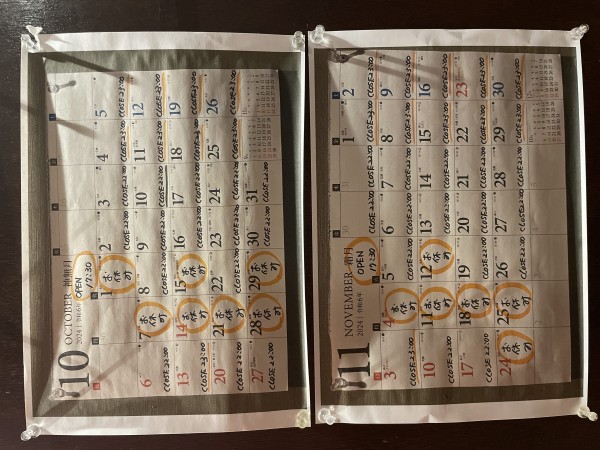 10
OCTOBER 神無月
2024 | 令和6年
OPEN
17:30
1 2 3 4 5
お休み CLOSE 22:00 CLOSE 22:00 CLOSE 23:00 CLOSE 23:00
6 7 8 9 10 11 12
CLOSE 23:00 お休み CLOSE 22:00 CLOSE 22:00 CLOSE 22:00 CLOSE 23:00 CLOSE 23:00
13 14 15 16 17 18 19
CLOSE 23:00 お休み お休み CLOSE 22:00 CLOSE 22:00 CLOSE 23:00 CLOSE 23:00
20 21 22 23 24 25 26
CLOSE 22:00 お休み CLOSE 22:00 CLOSE 22:00 CLOSE 22:00 CLOSE 23:00 CLOSE 23:00
27 28 29 30 31
CLOSE 22:00 お休み お休み CLOSE 22:00 CLOSE 22:00
11
NOVEMBER 霜月
2024 | 令和6年
OPEN
17:30
1 2
CLOSE 23:00 CLOSE 23:00
3 4 5 6 7 8 9
CLOSE 23:00 お休み CLOSE 22:00 CLOSE 22:00 CLOSE 22:00 CLOSE 23:00 CLOSE 23:00
10 11 12 13 14 15 16
CLOSE 22:00 お休み お休み CLOSE 22:00 CLOSE 22:00 CLOSE 23:00 CLOSE 23:00
17 18 19 20 21 22 23
CLOSE 22:00 お休み CLOSE 22:00 CLOSE 22:00 CLOSE 22:00 CLOSE 23:00 CLOSE 23:00
24 25 26 27 28 29 30
お休み お休み CLOSE 22:00 CLOSE 22:00 CLOSE 22:00 CLOSE 23:00 CLOSE 23:00